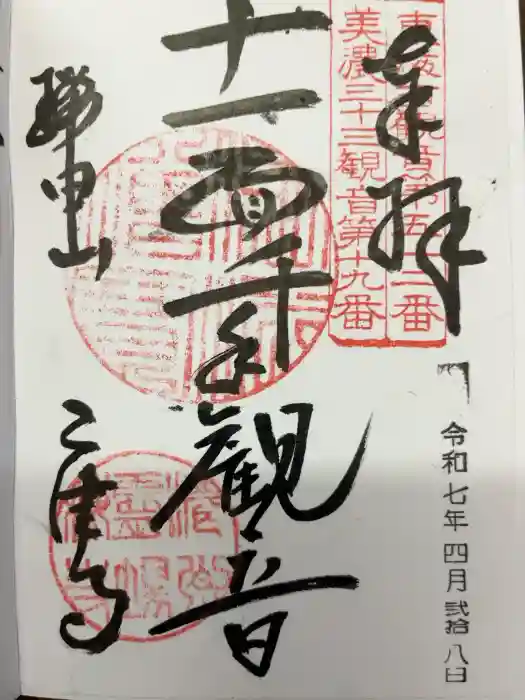 奉拝
東海百観音第五十二番
美濃三十三観音第十九番
十一面千手観音
瑞甲山
乙津寺
令和七年 四月 弐拾八日